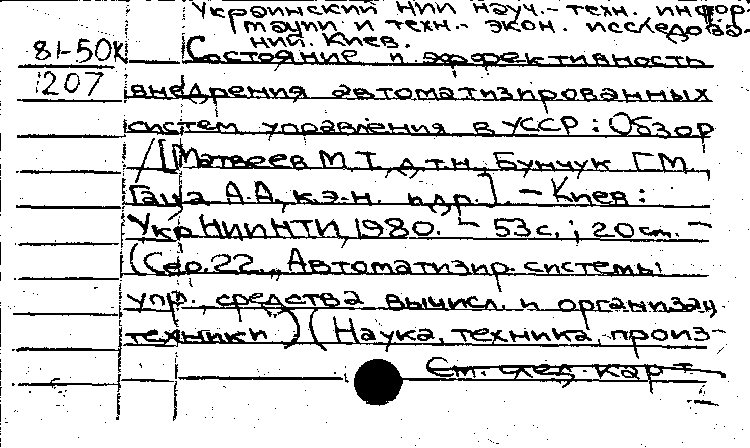 Украинский НИИ науч.-техн. инфор-
мации и техн.-экон. исследова-
ний. Киев.
81-50к Состояние и эффективность
1207 внедрения автоматизированных
систем управления в УССР: Обзор
/[Матвеев М.Т, д.т.н, Бунчук Г.М.,
Гаца А.А, к.э.н. и др.]. - Киев:
УкрНИИНТИ, 1980. - 53с.; 20 см. -
(Сер.22., Автоматизир. системы
упр., средства вычисл. и организац
техники) (Наука, техника, произ-
См. след. кар-